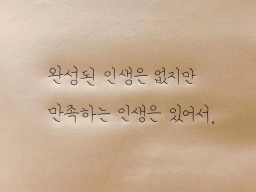 완성된 인생은 없지만
만족하는 인생은 있어서.